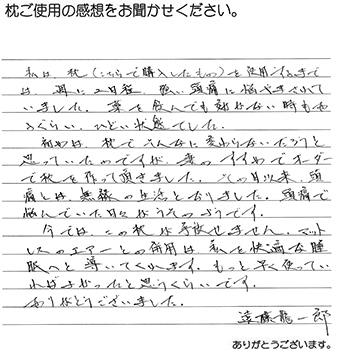 枕ご使用の感想をお聞かせください。
私は、枕(こちらで購入したもの)を使用するまで
は、週に2日程、強い頭痛に悩まされて
いました。薬を飲んでも効かない時もあ
るぐらい、ひどい状態でした。
初めは、枕でそんなに変わらないだろうと
思っていたのですが、妻のススめでオーダー
で枕を作って頂きました。その日以来、頭
痛とは、無縁の生活となりました。頭痛で
悩んでいた日々がうそのようです。
今では、この枕が手放せません。マット
レスのエアーとの併用は、私を快適な睡
眠へと導いてくれます。もっと早く使ってい
ればよかったと思うくらいです。
ありがとうございました。
遠藤龍一郎
ありがとうございます。